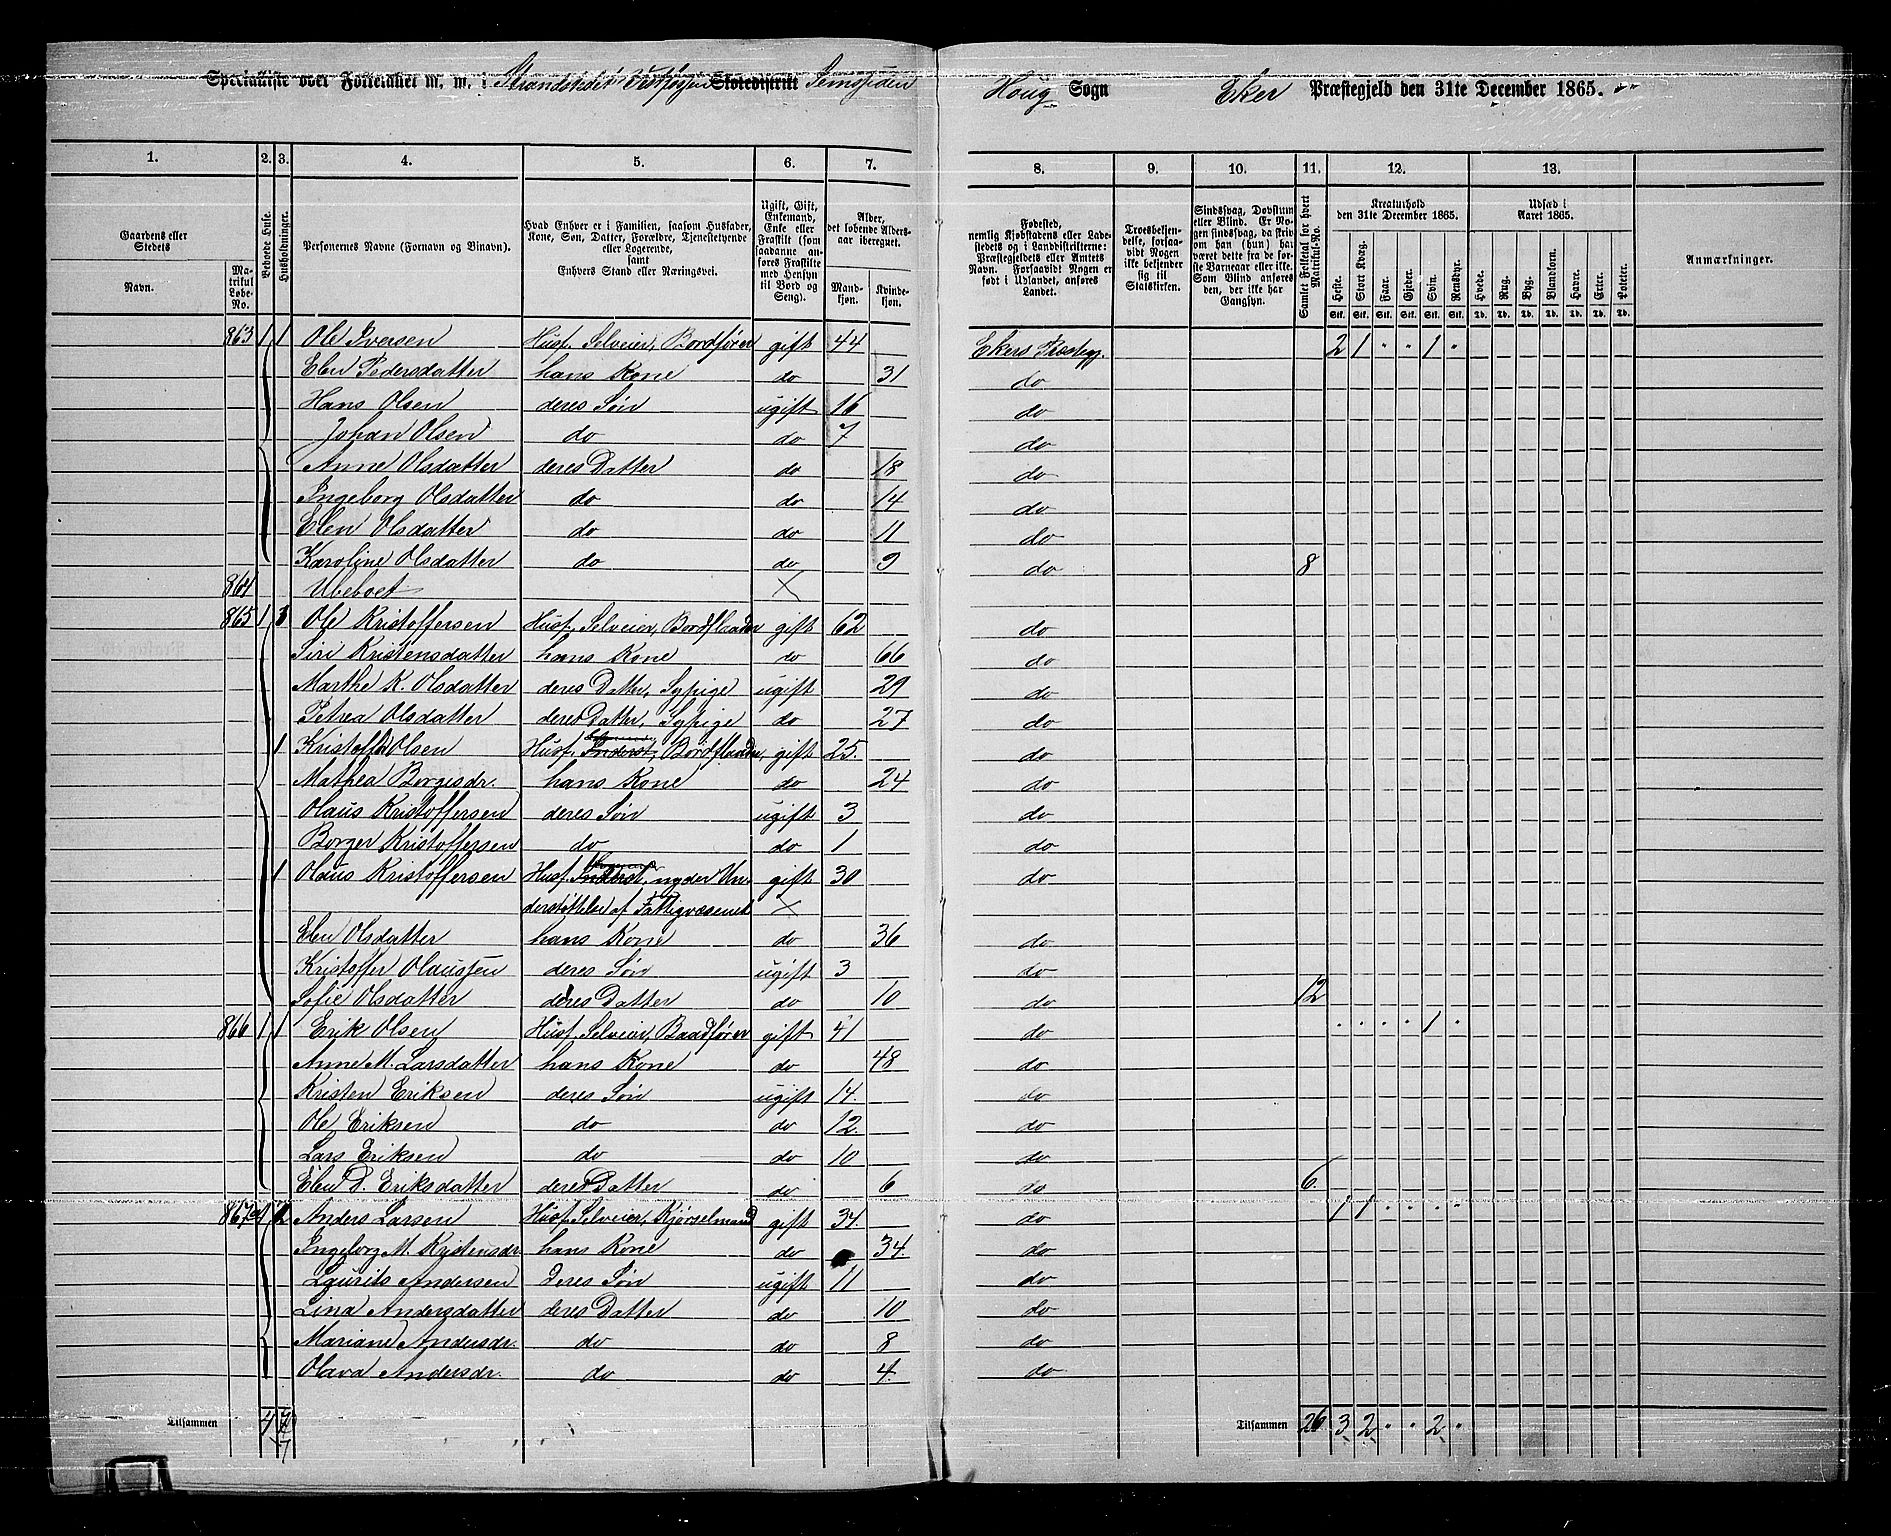 Specialliste over Folketallet m. m. i Strandstedet Skoledistrikt Semssiden Houg Sogn Eker Præstegjeld den 31te December 1865.
1. 2. 3. 4. 5. 6. 7. 8. 9. 10. 11. 12. 13.
Gaardens eller Stedets
Navn.
Matrikul Løbe-No.
Beboede Huse.
Husholdninger.
Personernes Navne (Fornavn og Binavn).
Hvad Enhver er i Familien, saasom Husfader, Kone, Søn, Datter, Forældre, Tjenestetyende eller Logerende, samt Enhvers Stand eller Næringsvei.
Ugift, Gift, Enkemand, Enke eller Fraskilt (som saadanne anføres Fraskilte med Hensyn til Bord og Seng).
Alder, det løbende Aldersaar iberegnet.
Mandkjøn. Kvindekjøn.
Fødested, nemlig Kjøbstadens eller Ladestedets og i Landdistrikterne: Præstegjeldets eller Amtets Navn. Forsaavidt Nogen er født i Udlandet, anføres Landet.
Troesbekjendelse, forsaavidt Nogen ikke bekjender sig til Statskirken.
Sindssvag, Døvstum eller Blind. Er Nogen sindssvag, da skriv om han (hun) har været dette fra de første Barneaar eller ikke. Som Blind anføres den, der ikke har Gangsyn.
Samlet Folketal for hvert Matrikul-No.
Kreaturhold den 31te December 1865.
Heste. Stort Kvæg. Faar. Gjeder. Svin. Rensdyr.
Udsæd i Aaret 1865.
Hvede. Rug. Byg. Blandkorn. Havre. Erter. Poteter.
Anmærkninger.
Stk. Stk. Stk. Stk. Stk. Stk. Td. Td. Td. Td. Td. Td. Td.
863 1 1 Ole Iversen Husf. Selveier, Bordfører gift 44 Ekers Præstegj. 2 1 " " 1 "
Elen Pedersdatter hans Kone do 31 do
Hans Olsen deres Søn ugift 16 do
Johan Olsen do do 7 do
Anne Olsdatter deres Datter do 18 do
Ingeborg Olsdatter do do 14 do
Elen Olsdatter do do 11 do
Karoline Olsdatter do do 9 do 8
864 Ubeboet
865 1 3 Ole Kristoffersen Husf. Selveier, Bordflaader gift 62 do
Siri Kristensdatter hans Kone do 66 do
Marthe K. Olsdatter deres Datter, Sypige ugift 29 do
Petrea Olsdatter deres Datter, Sypige do 27 do
1 Kristoffer Olsen Husf. Inderst, Bordflaader, gift 25. do
Mathea Borgesdr. hans Kone do 24 do
Olaus Kristoffersen deres Søn ugift 3 do
Borger Kristoffersen do do 1 do
1 Olaus Kristoffersen Husf. Inderst, nyder Un- gift 30 do
derstøttelse af Fattigvæsenet
Elen Olsdatter hans Kone do 36 do
Kristoffer Olaussen deres Søn ugift 3 do
Sofie Olsdatter deres Datter do 10 do 12
866 1 1 Erik Olsen Husf. Selveier, Baadfører gift 41 do " " " " 1 "
Anne M. Larsdatter hans Kone do 48 do
Kristen Eriksen deres Søn ugift 14. do
Ole Eriksen do do 12. do
Lars Eriksen do do 10 do
Elen D. Eriksdatter deres Datter do 6 do 6
867a 1 2 Anders Larsen Husf. Selveier, Kjørselmand gift 34. do 1 1 " " " "
Ingeborg M. Kristensdr. hans Kone do 34. do
Lauritz Andersen deres Søn ugift 11 do
Lina Andersdatter deres Datter do 10 do
Mariane Andersdr. do do 8 do
Olava Andersdr. do do 4. do
Tilsammen 4 7 Tilsammen 26 3 2 " " 2 "